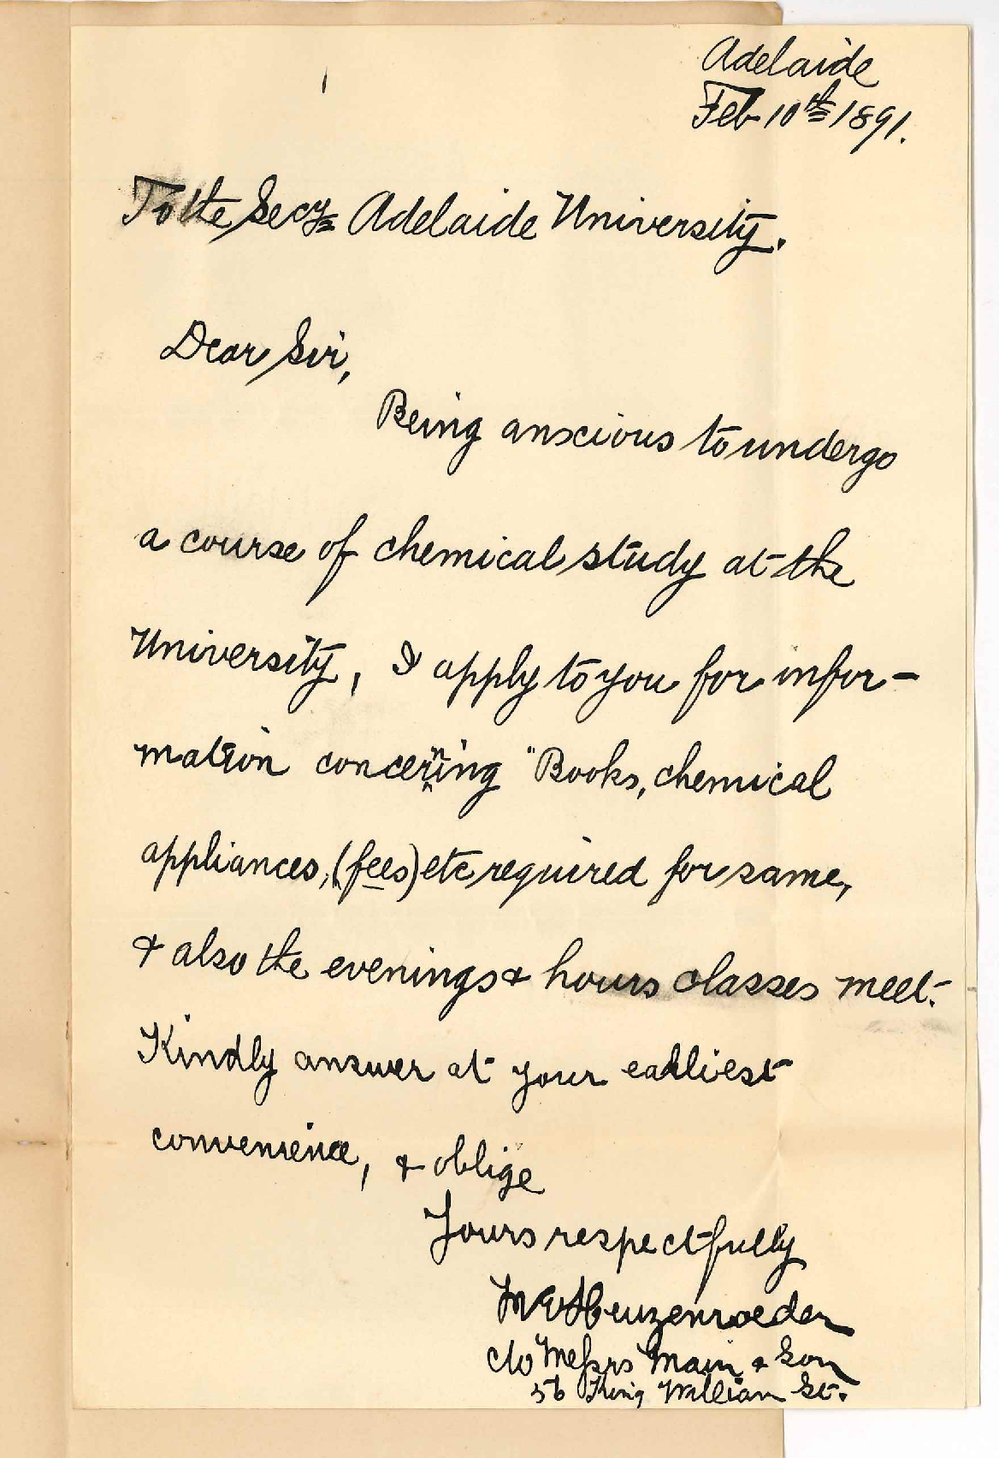 Adelaide
Feb 10th 1891.
To the Secy Adelaide University.
Dear Sir,
Being anxcious to undergo
a course of chemical study at the
University, I apply to you for infor-
mation concerning "Books, chemical
appliances, (fees) etc required for same,
& also the evenings & hours classes meet.
Kindly answer at your earliest
convenience, & oblige
Yours respectfully
Heuzenroeder
c/o Messrs Main & Son
56 King William St.